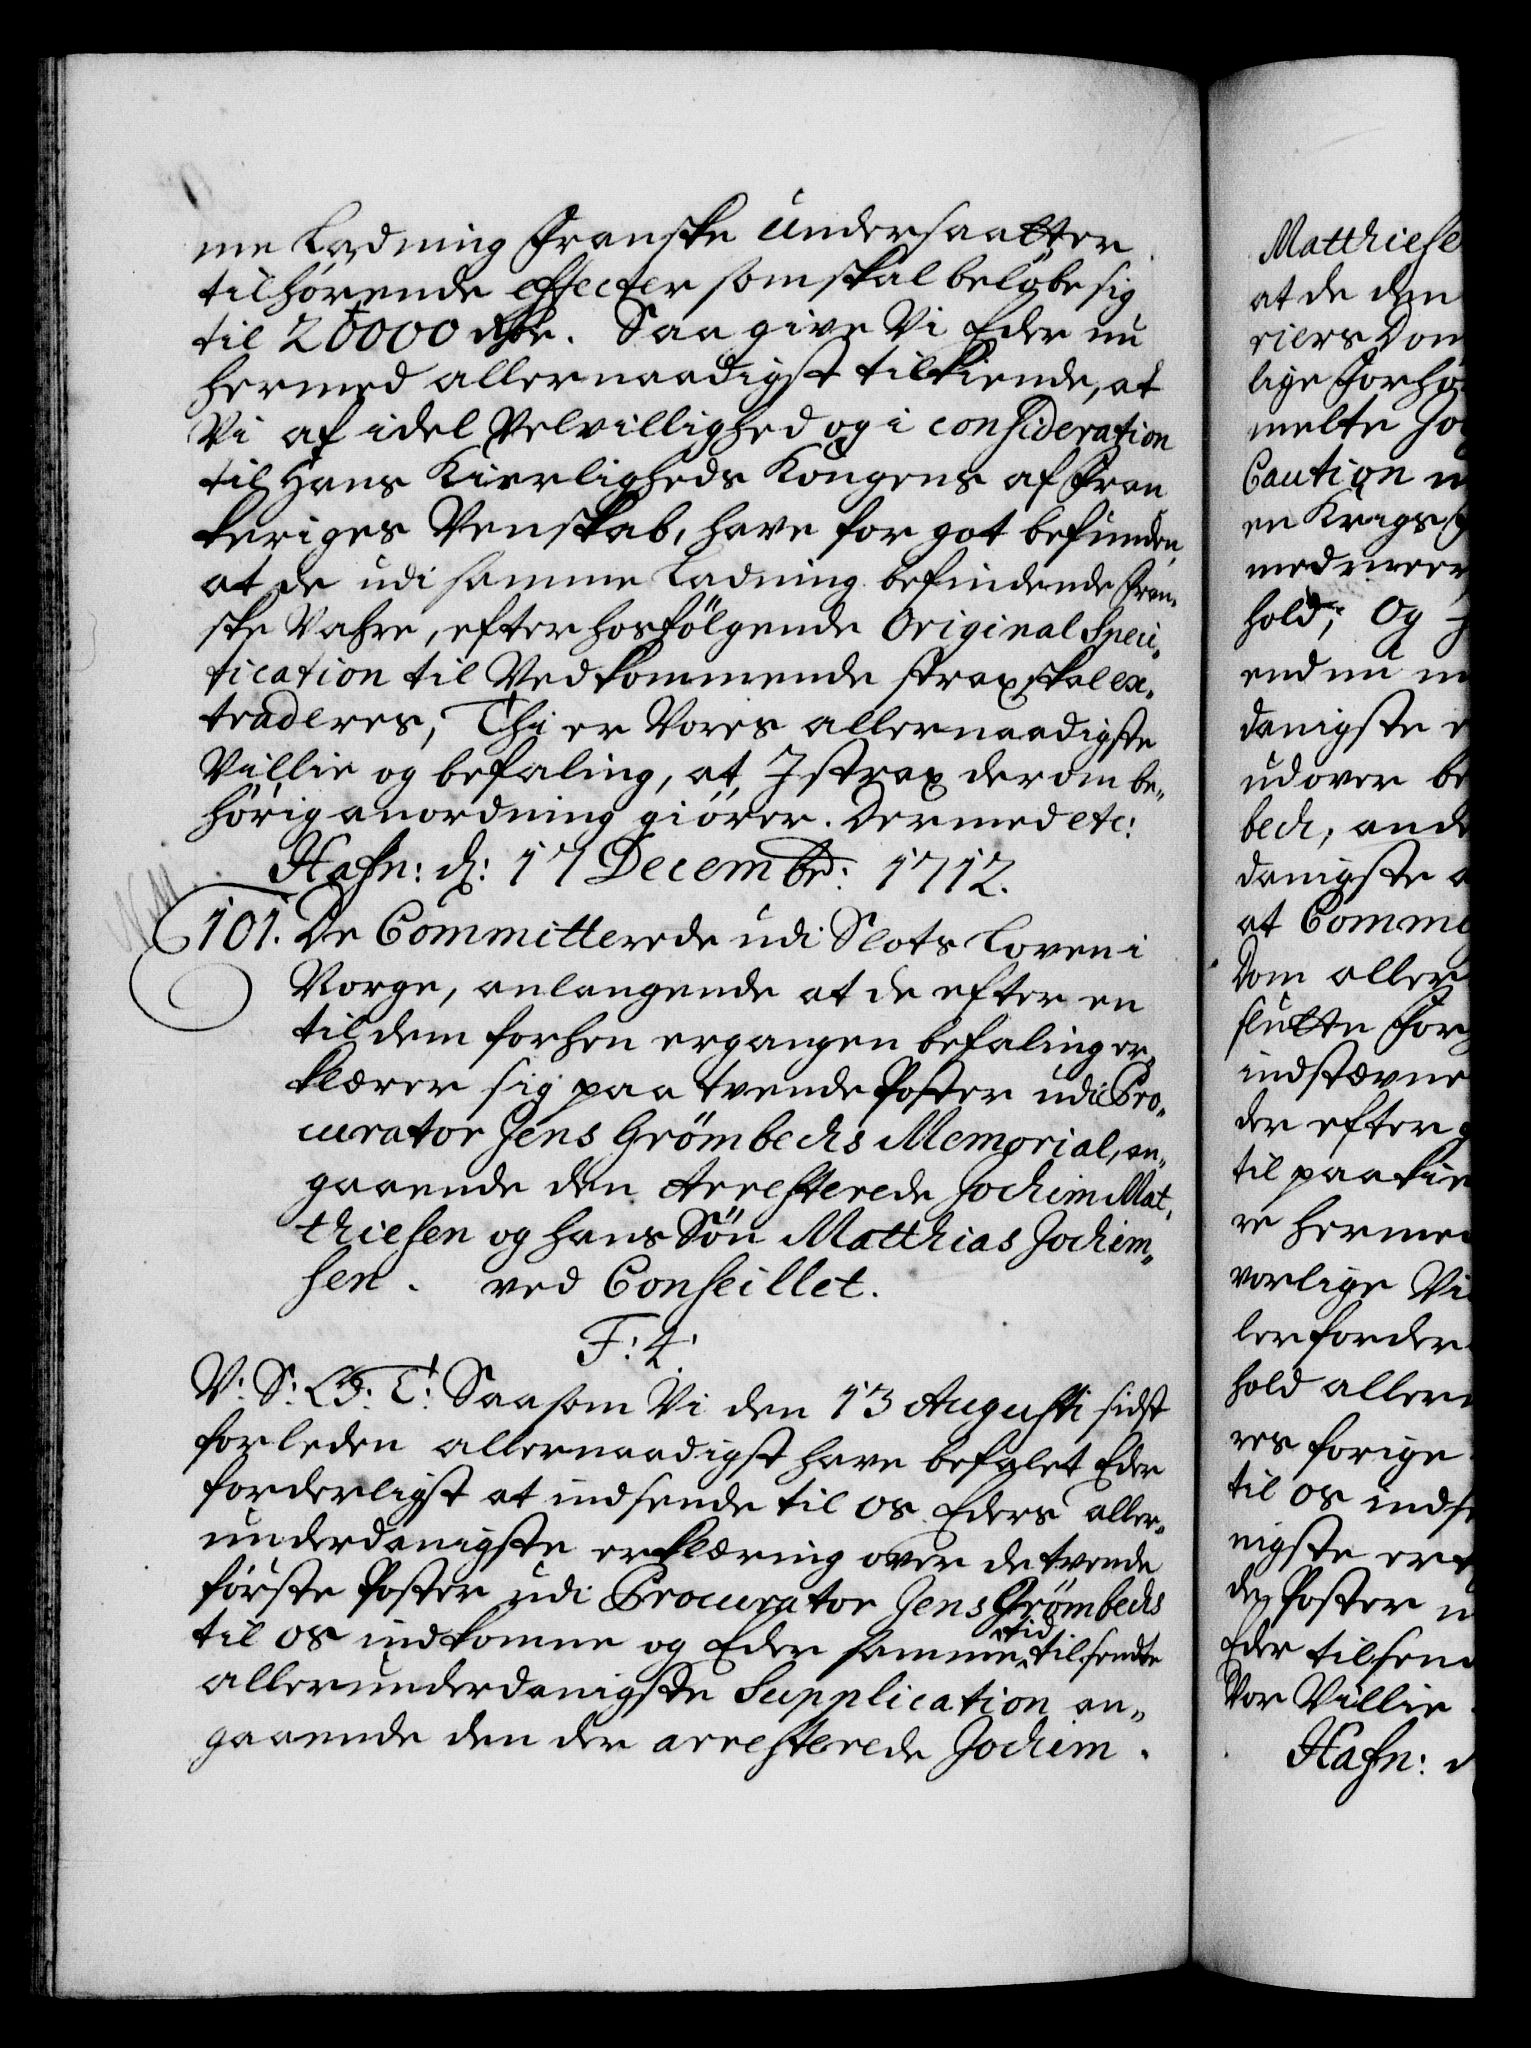 me Ladning Franske Undersaatter
tilhørende effecter som skal beløbe sig
til 20000 rdr. Saa give Vi Eder nu
hermed allernaadigst tilkiende, at
Vi af idel Velvillighed og i consideration
til Hans Kierligheds Kongens af Fran
keriges Venskab, have for got befunden,
at de udi samme Ladning befindende Fran„
ske Vahre, efter hosfölgende Original Speci„
fication til Vedkommende strax skal ex„
traderes; Thi er Vores allernaadigste
Villie og befaling, at I strax derom be„
hörig anordning giörer. Dermed etc:
Hafn: d: 17 Decembr: 1712.
101. De Committerede udi Slots Loven i
Norge, anlangende at de efter en
til dem forhen ergangen befaling er„
klærer sig paa tvende Poster udi Pro„
curator Jens Grömbechs Memorial, an„
gaaende den Arresterede Jochim Mat„
thiesen og hans Sön Matthias Jochim„
sen. ved Conseillet.
F: 4:
V: S: G: T: Saasom Vi den 13 Augusti sidst
forleden allernaadigst have befalet Eder
forderligst at indsende til os Eders aller„
underdanigste erklæring over de tvende
förste Poster udi Procurator Jens Grömbechs
til os indkomne og Eder samme tid tilsendte
allerunderdanigste Supplication an„
gaaende den der arresterede Jochim
Matthiese
at de den
riers Dom
lige Forhö
melte Jo
Caution
en Krags
med meer
hold; Og
endnu
danigste
udover be
bech, and
danigste a
at Comme
Dom aller
slutte For
indstævne
der efter
til paakie
re herme
vorlige Vi
ler forder
hold aller
res forige
til os inds
nigste erk
de Poster
Eder tilsen
Vor Villie
Hafn: d